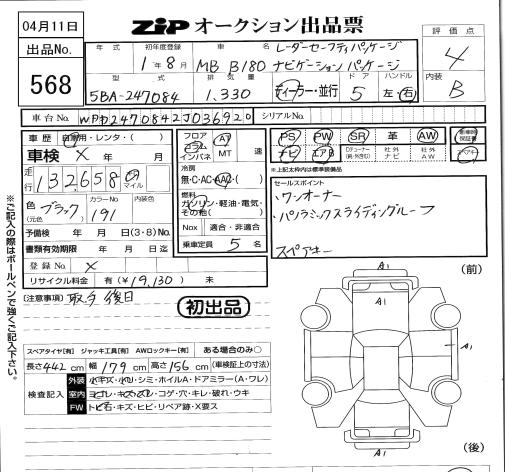 04月11日
ZIP オークション出品票
出品No.
568
年式 初年度登録 車名
1年8月 MB B180 レーダーセーフティパッケージ
ナビゲーションパッケージ
型式 排気量 ドア ハンドル
5BA-247084 1.330 ディーラー・並行 5 左・右
評価点
4
内装
B
車台No. シリアルNo.
車歴 自家用・レンタ・( )
車検 X 年 月
走行 132,658 km マイル
色(元色) ブラック カラーNo 191 内装色
予備検 年 月 日(3・8)No.
書類有効期限 年 月 日迄
登録No. X
リサイクル料金 有(¥19,130) 未
フロア コラム インパネ AT MT 速
冷房 無・C・AC・AAC・( )
燃料 ガソリン・軽油・電気・その他( )
Nox 適合・非適合
乗車定員 5 名
PS PW SR 革 AW
ナビ エアB 社外ナビ 社外AW
※上記太枠内は標準装備品
セールスポイント
・ワンオーナー
・パノラミックスライディングルーフ
スペアキー
[注意事項] 取多 後日
初出品
スペアタイヤ[有] ジャッキ工具[有] AWロックキー[有] ある場合のみ○
長さ442cm 幅179cm 高さ156cm (車検証上の寸法)
検査記入
外装 小キズ・小凹・シミ・ホイルA・ドアミラー(A・ワレ)
室内 ヨゴレ・キズ・スレ・コゲ・穴・キレ・破れ・ウキ
FW トビ石・キズ・ヒビ・リペア跡・X要ス
(前)
A1
A1
A1
A1
(後)
※ご記入の際はボールペンで強くご記入下さい。